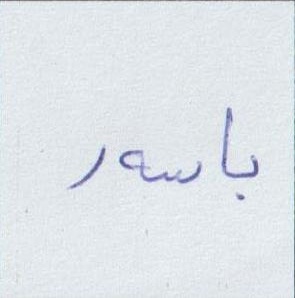 باسەر